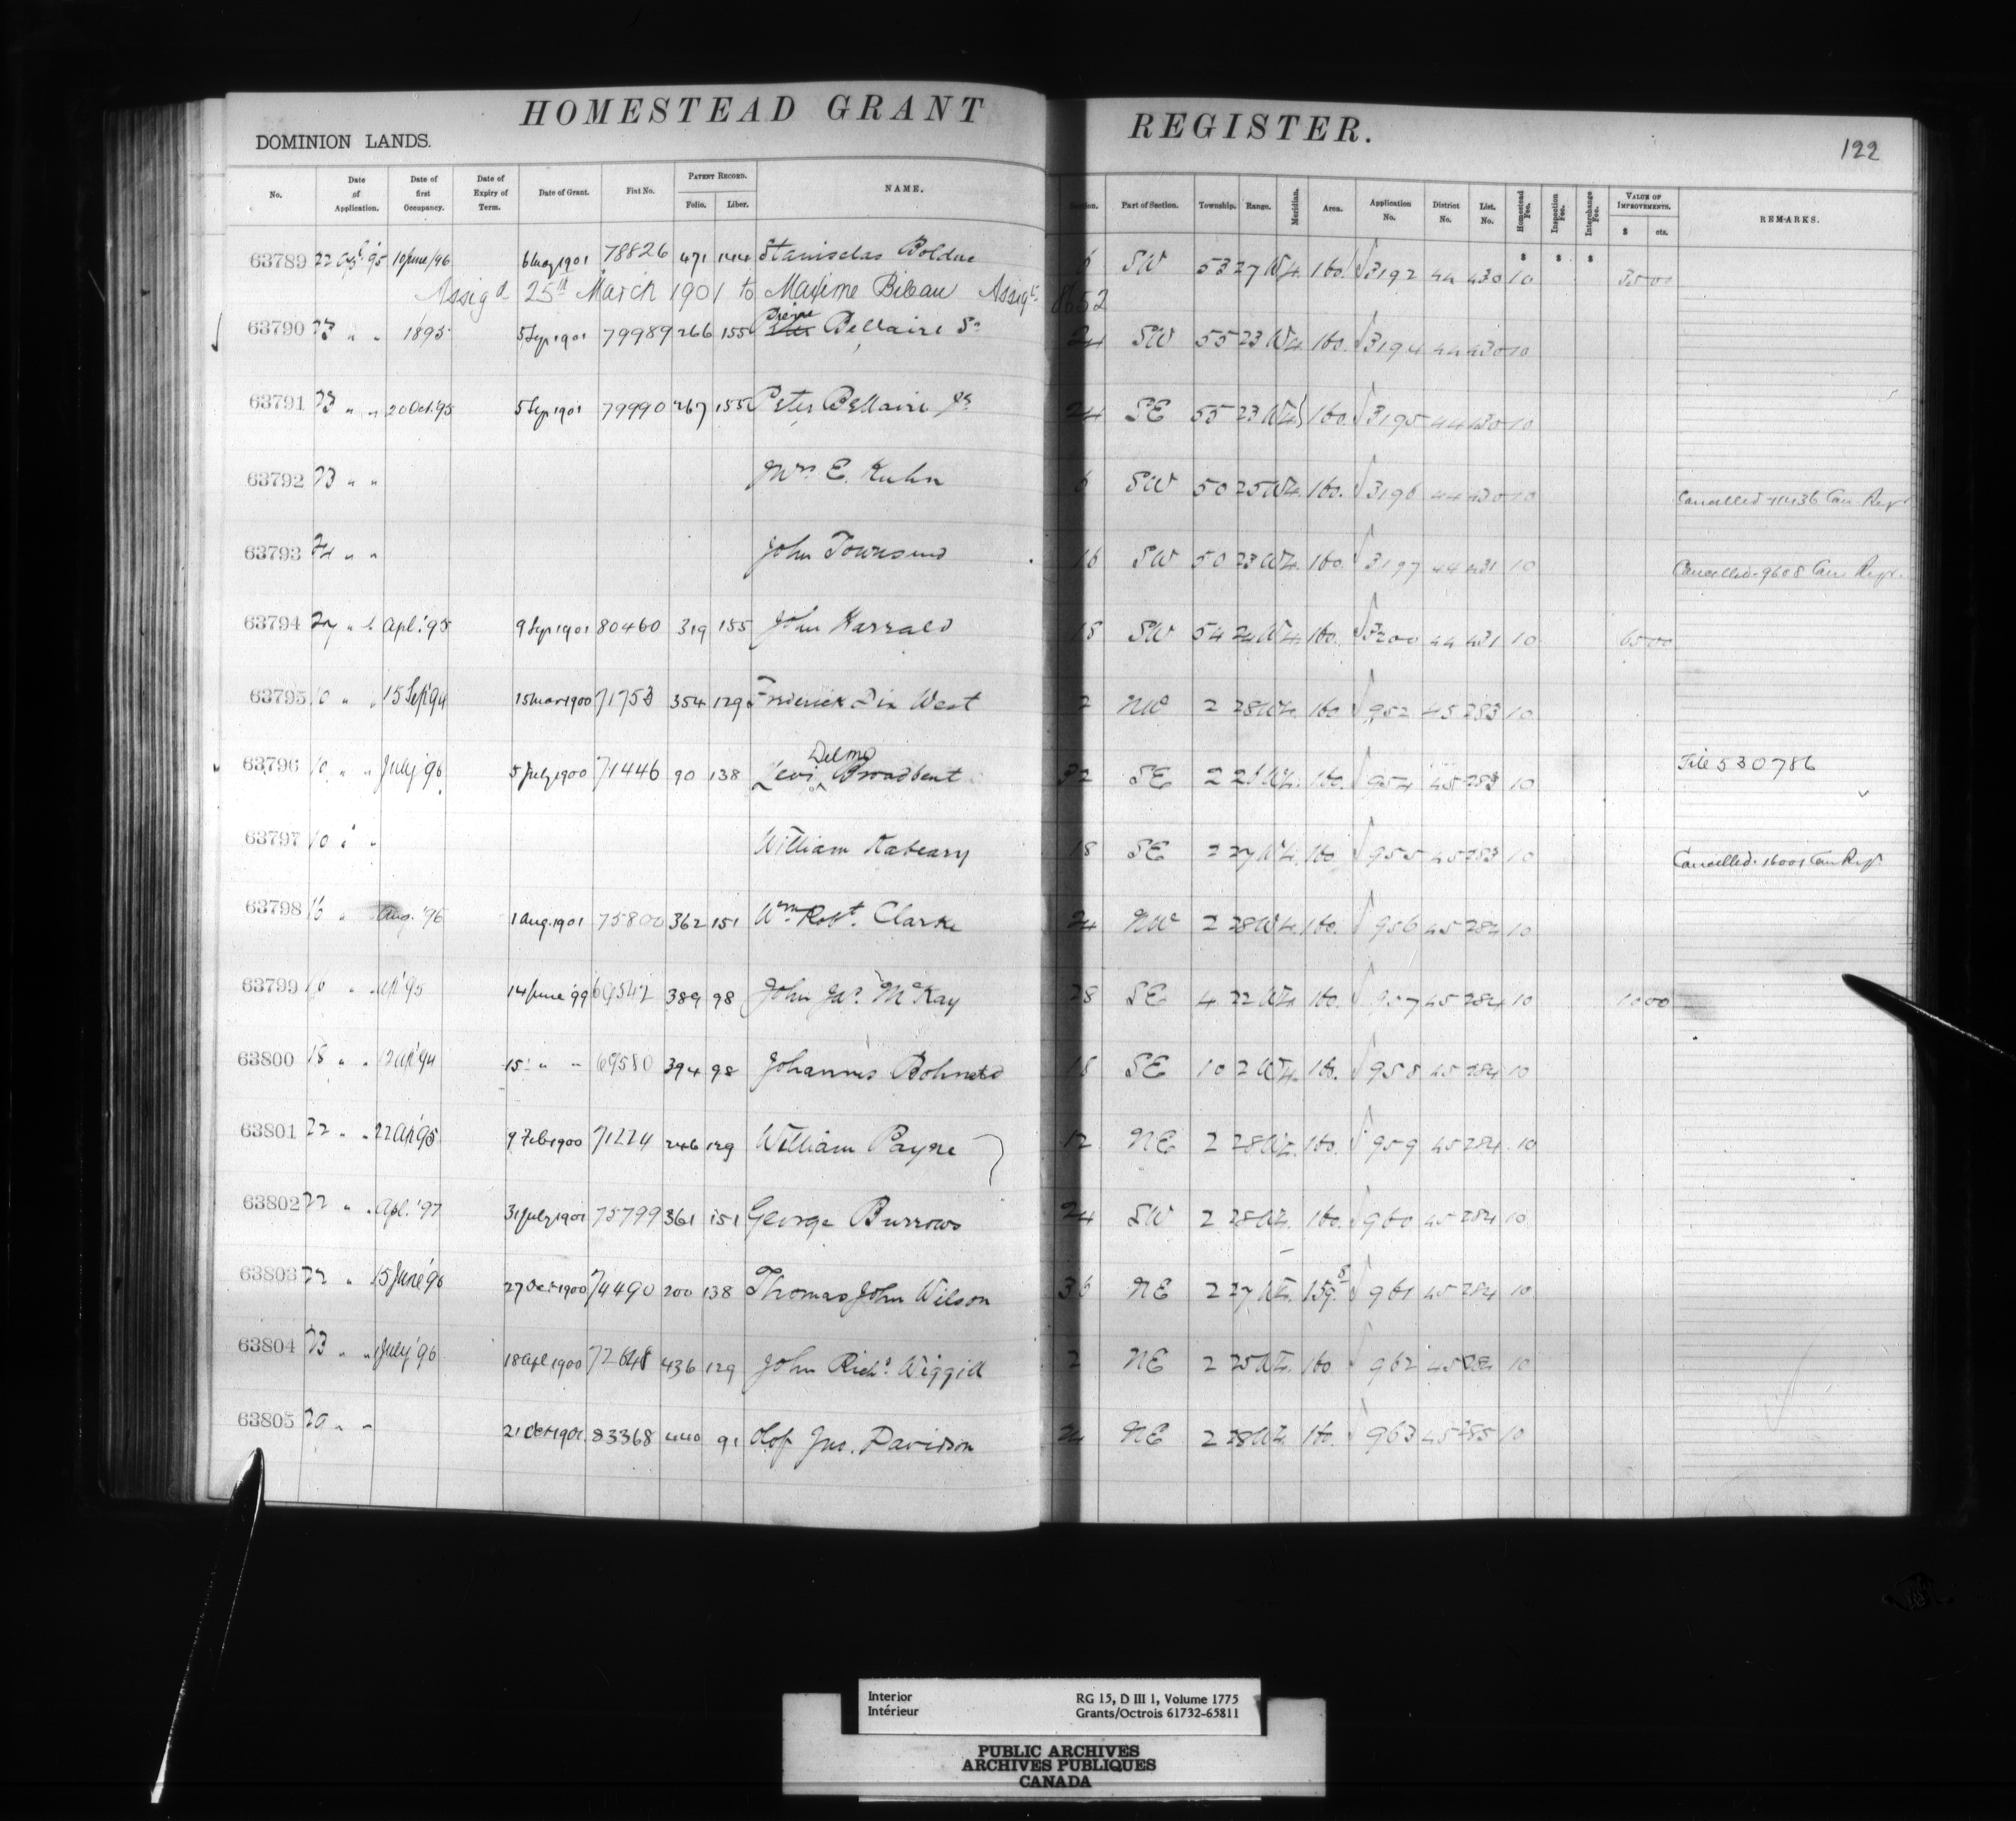 HOMESTEAD GRANT REGISTER.
122
DOMINION LANDS.
No. Date of Application. Date of first Occupancy. Date of Expiry of Term. Date of Grant. Fiat No. PATENT RECORD. Folio. Liber. NAME. Section. Part of Section. Township. Range. Meridian. Area. Application No. District No. List. No. Homestead Fee. Inspection Fee. Interchange Fee. VALUE OF IMPROVEMENTS. $ cts. REMARKS.
63789 22 '95 10 June/96 6 May 1901 78826 471 144 Stanislas Bolduc 6 SW 53 27 W4. 160. 3192 44 430 10
Assigd 25th March 1901 to Maxime Bibeau 8652
63790 23 " " 1895 5 Sep 1901 79989 266 155 Pierre Bellaire Sr 24 SW 55 23 W4. 160. 3194 44 430 10
63791 23 " " 20 Oct. 95 5 Sep 1901 79990 267 155 Peter Bellaire Jr 24 SE 55 23 W4 160. 3195 44 430 10
63792 23 " " E. Kuhn 6 SW 50 25 W4. 160. 3196 44 430 10 Cancelled 11436 Can. Regr
63793 24 " " John Townsend 16 SW 50 23 W4. 160. 3197 44 431 10 Cancelled 9608 Can. Regr.
63794 " Apl. '95 9 Sep 1901 80460 319 155 John 18 SW 54 24 W4. 160. 3200 44 431 10
63795 10 " " 15 Sep '94 15 Mar 1900 71753 354 129 Frederick Dix West 2 NW 2 28 W4. 160 952 45 283 10
63796 10 " " July '96 5 July 1900 71446 90 138 Levi Delmo Broadbent 32 SE 2 W4. 160. 954 45 283 10 File 530786
63797 10 " " William 18 SE 2 27 W4. 160 955 45 283 10 Cancelled. 16001 Can Regr.
63798 16 " Aug. '96 1 Aug. 1901 75800 362 151 Wm Robt. Clarke 24 NW 2 28 W4. 160. 956 45 284 10
63799 16 " " '95 14 June '99 69547 389 98 John Jas. McKay 28 SE 4 22 W4. 160. 957 45 284 10
63800 18 " " '94 15 " " 69580 394 98 Johannes 18 SE 10 2 W4. 160. 958 45 284 10
63801 22 " " 22 Ap '95 9 Feb 1900 71224 246 129 William Payne 12 NE 2 28 W4. 160. 959 45 284 10
63802 22 " " Apl. '97 31 July 1901 75799 361 151 George Burrows 24 SW 2 28 W4. 160. 960 45 284 10
63803 22 " 15 June '96 27 Oct 1900 74490 200 138 Thomas John Wilson 36 NE 2 27 W4. 159. 961 45 284 10
63804 23 " " July '96 18 Apl 1900 72648 436 129 John Richd. Wiggill 2 NE 2 25 W4. 160 962 45 284 10
63805 " " 21 Oct 1901. 83368 440 91 Olof Jno. Davidson 24 NE 2 28 W4. 160. 963 45 285 10
Interior RG 15, D III 1, Volume 1775
Intérieur Grants/Octrois 61732-65811
PUBLIC ARCHIVES
ARCHIVES PUBLIQUES
CANADA